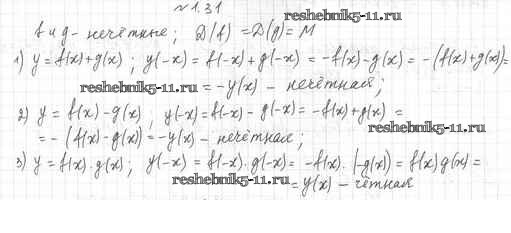 №1.31
reshebnik5-11.ru
f и g - нечётные; D(f) = D(g) = M
1) y = f(x)+g(x); y(-x) = f(-x)+g(-x) = -f(x)-g(x) = -(f(x)+g(x))=
reshebnik5-11.ru = -y(x) - нечётная;
2) y = f(x) - g(x); y(-x)=f(-x) - g(-x) = -f(x)+g(x) =
reshebnik5-11.ru
= - (f(x) - g(x)) = -y(x) - нечётная;
3) y = f(x)·g(x); y(-x) = f(-x)·g(-x)= -f(x)·(-g(x)) = f(x)g(x) =
reshebnik5-11.ru = y(x) - чётная